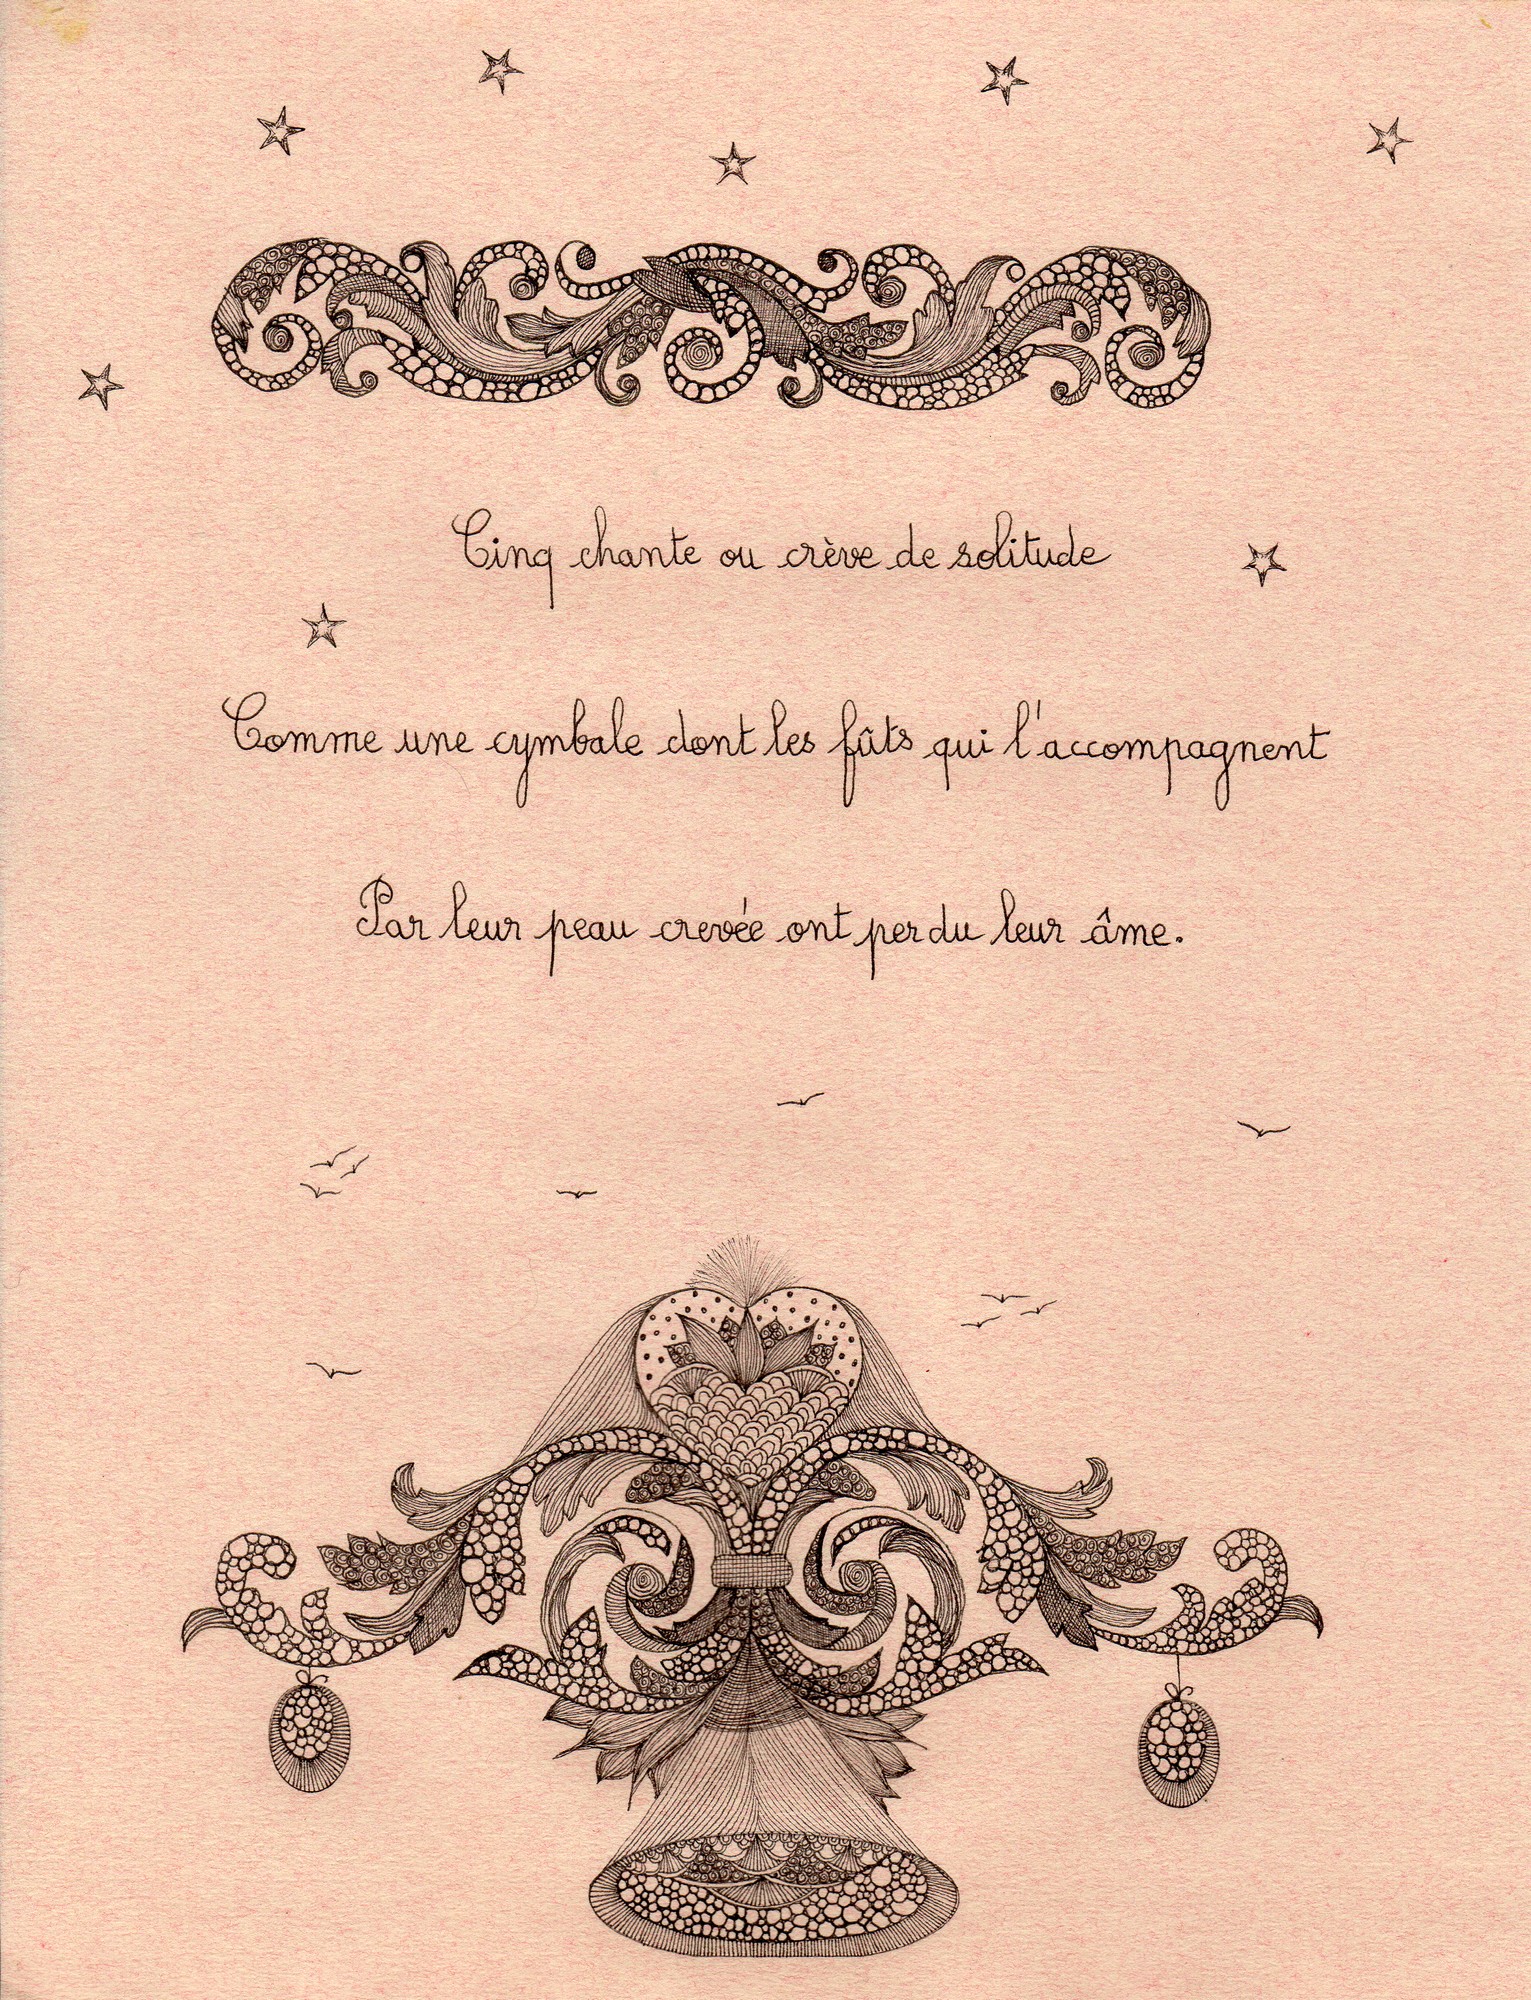 Cinq chante ou crève de solitude
Comme une cymbale dont les fûts qui l'accompagnent
Par leur peau crevée ont perdu leur âme.